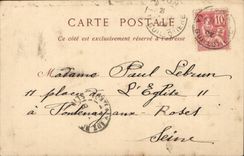 CARTE POSTALE
Ce côté est exclusivement réservé à l'adresse
Madame Paul Lebrun
11 place de L'Eglise 11
à Fontenay-aux-Roses
Seine
10